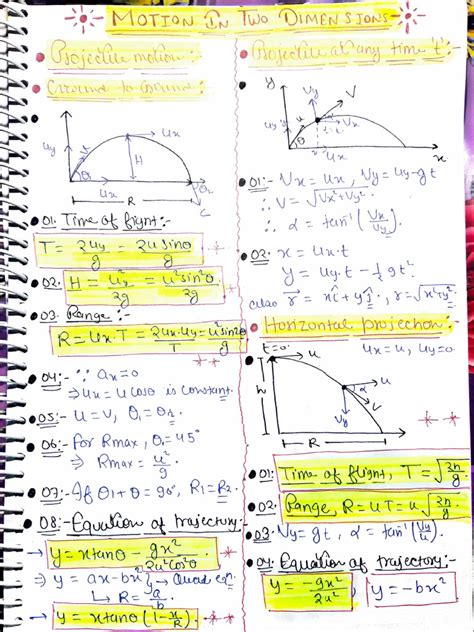 MOTION IN TWO DIMENSIONS
Projectile motion:-
Ground to Ground:-
uy
u
θ
ux
H
ux
θ2
R
01. Time of flight:-
T = 2uy/g = 2u sinθ/g
02. H = u²x/2g = u² sin²θ/2g
03. Range:-
R = ux.T = 2ux.uy/T = u² sin2θ/g
04:- ∵ ax = 0
⇒ ux = u cosθ is constant.
05:- u = v, θ1 = θ2
06:- For Rmax, θ = 45°
⇒ Rmax = u²/g
07:- If θ1 + θ = 90°, R1 = R2.
08:- Equation of trajectory:-
→ y = x tanθ - gx²/2u²cos²θ
⇒ y = ax - bx² → Quad eqn.
↳ R = a/b
→ y = x tanθ (1 - x/R)
Projectile at any time 't':-
y
Vy
V
uy
u
Vx
θ
x
01:- Vx = ux, Vy = uy - gt
∴ V = √Vx² + Vy²
∴ α = tan⁻¹ (Vx/Vy)
02. x = ux.t
y = uy.t - ½ gt²
also r = xî + yĵ, r = √x² + y²
Horizontal projection:-
t=0
u
ux = u, uy = 0
h
α
u
Vy
V
R
01: Time of flight, T = √2h/g
02: Range, R = uT = u√2h/g
03. Vy = gt, α = tan⁻¹ (Vy/u)
04. Equation of trajectory:-
y = -gx²/2u², y = -bx²